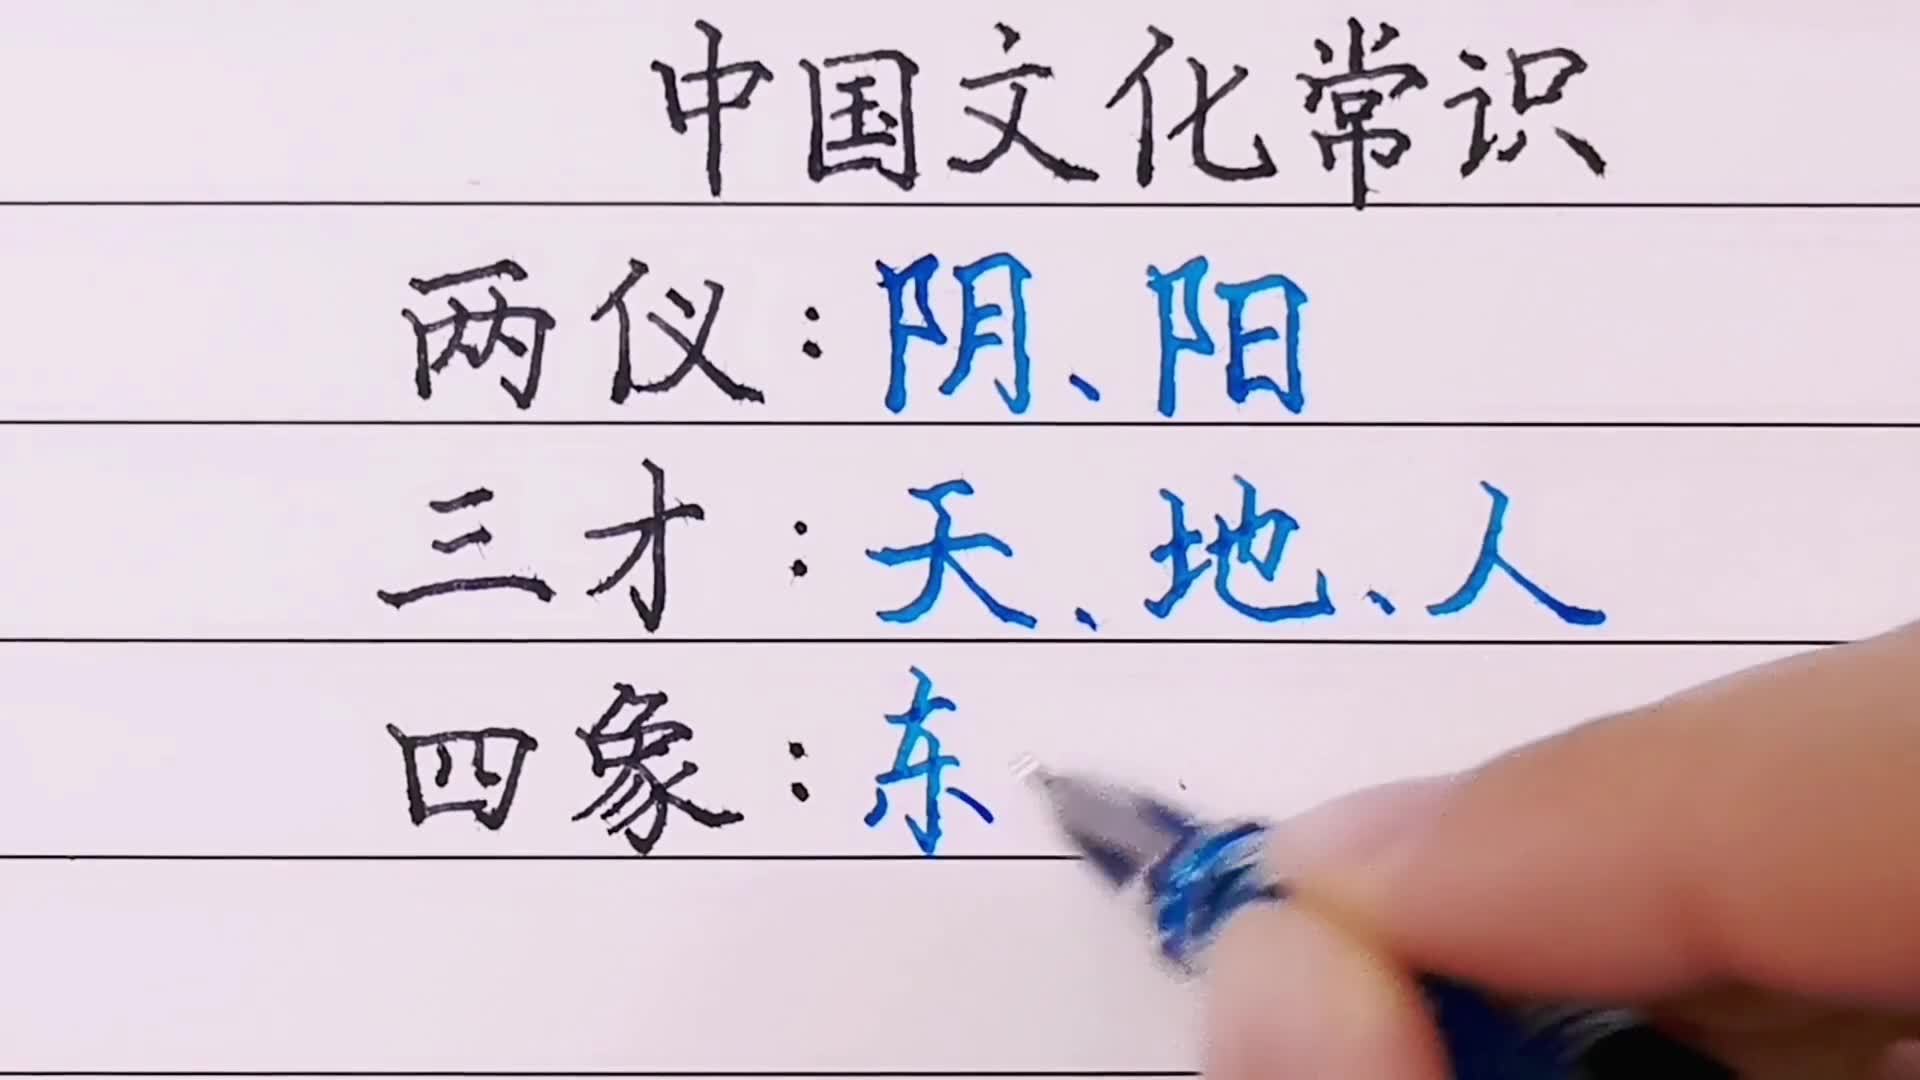 中国文化常识
两仪：阴、阳
三才：天、地、人
四象：东